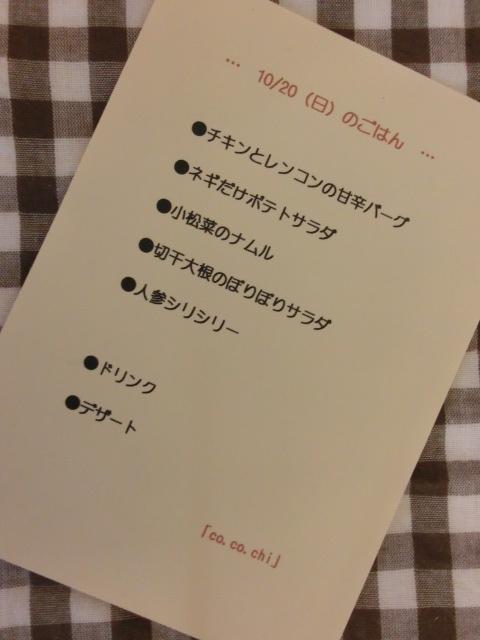 … 10/20（日）のごはん …
●チキンとレンコンの甘辛バーグ
●ネギだけポテトサラダ
●小松菜のナムル
●切干大根のぽりぽりサラダ
●人参シリシリー
●ドリンク
●デザート
「co.co.chi」